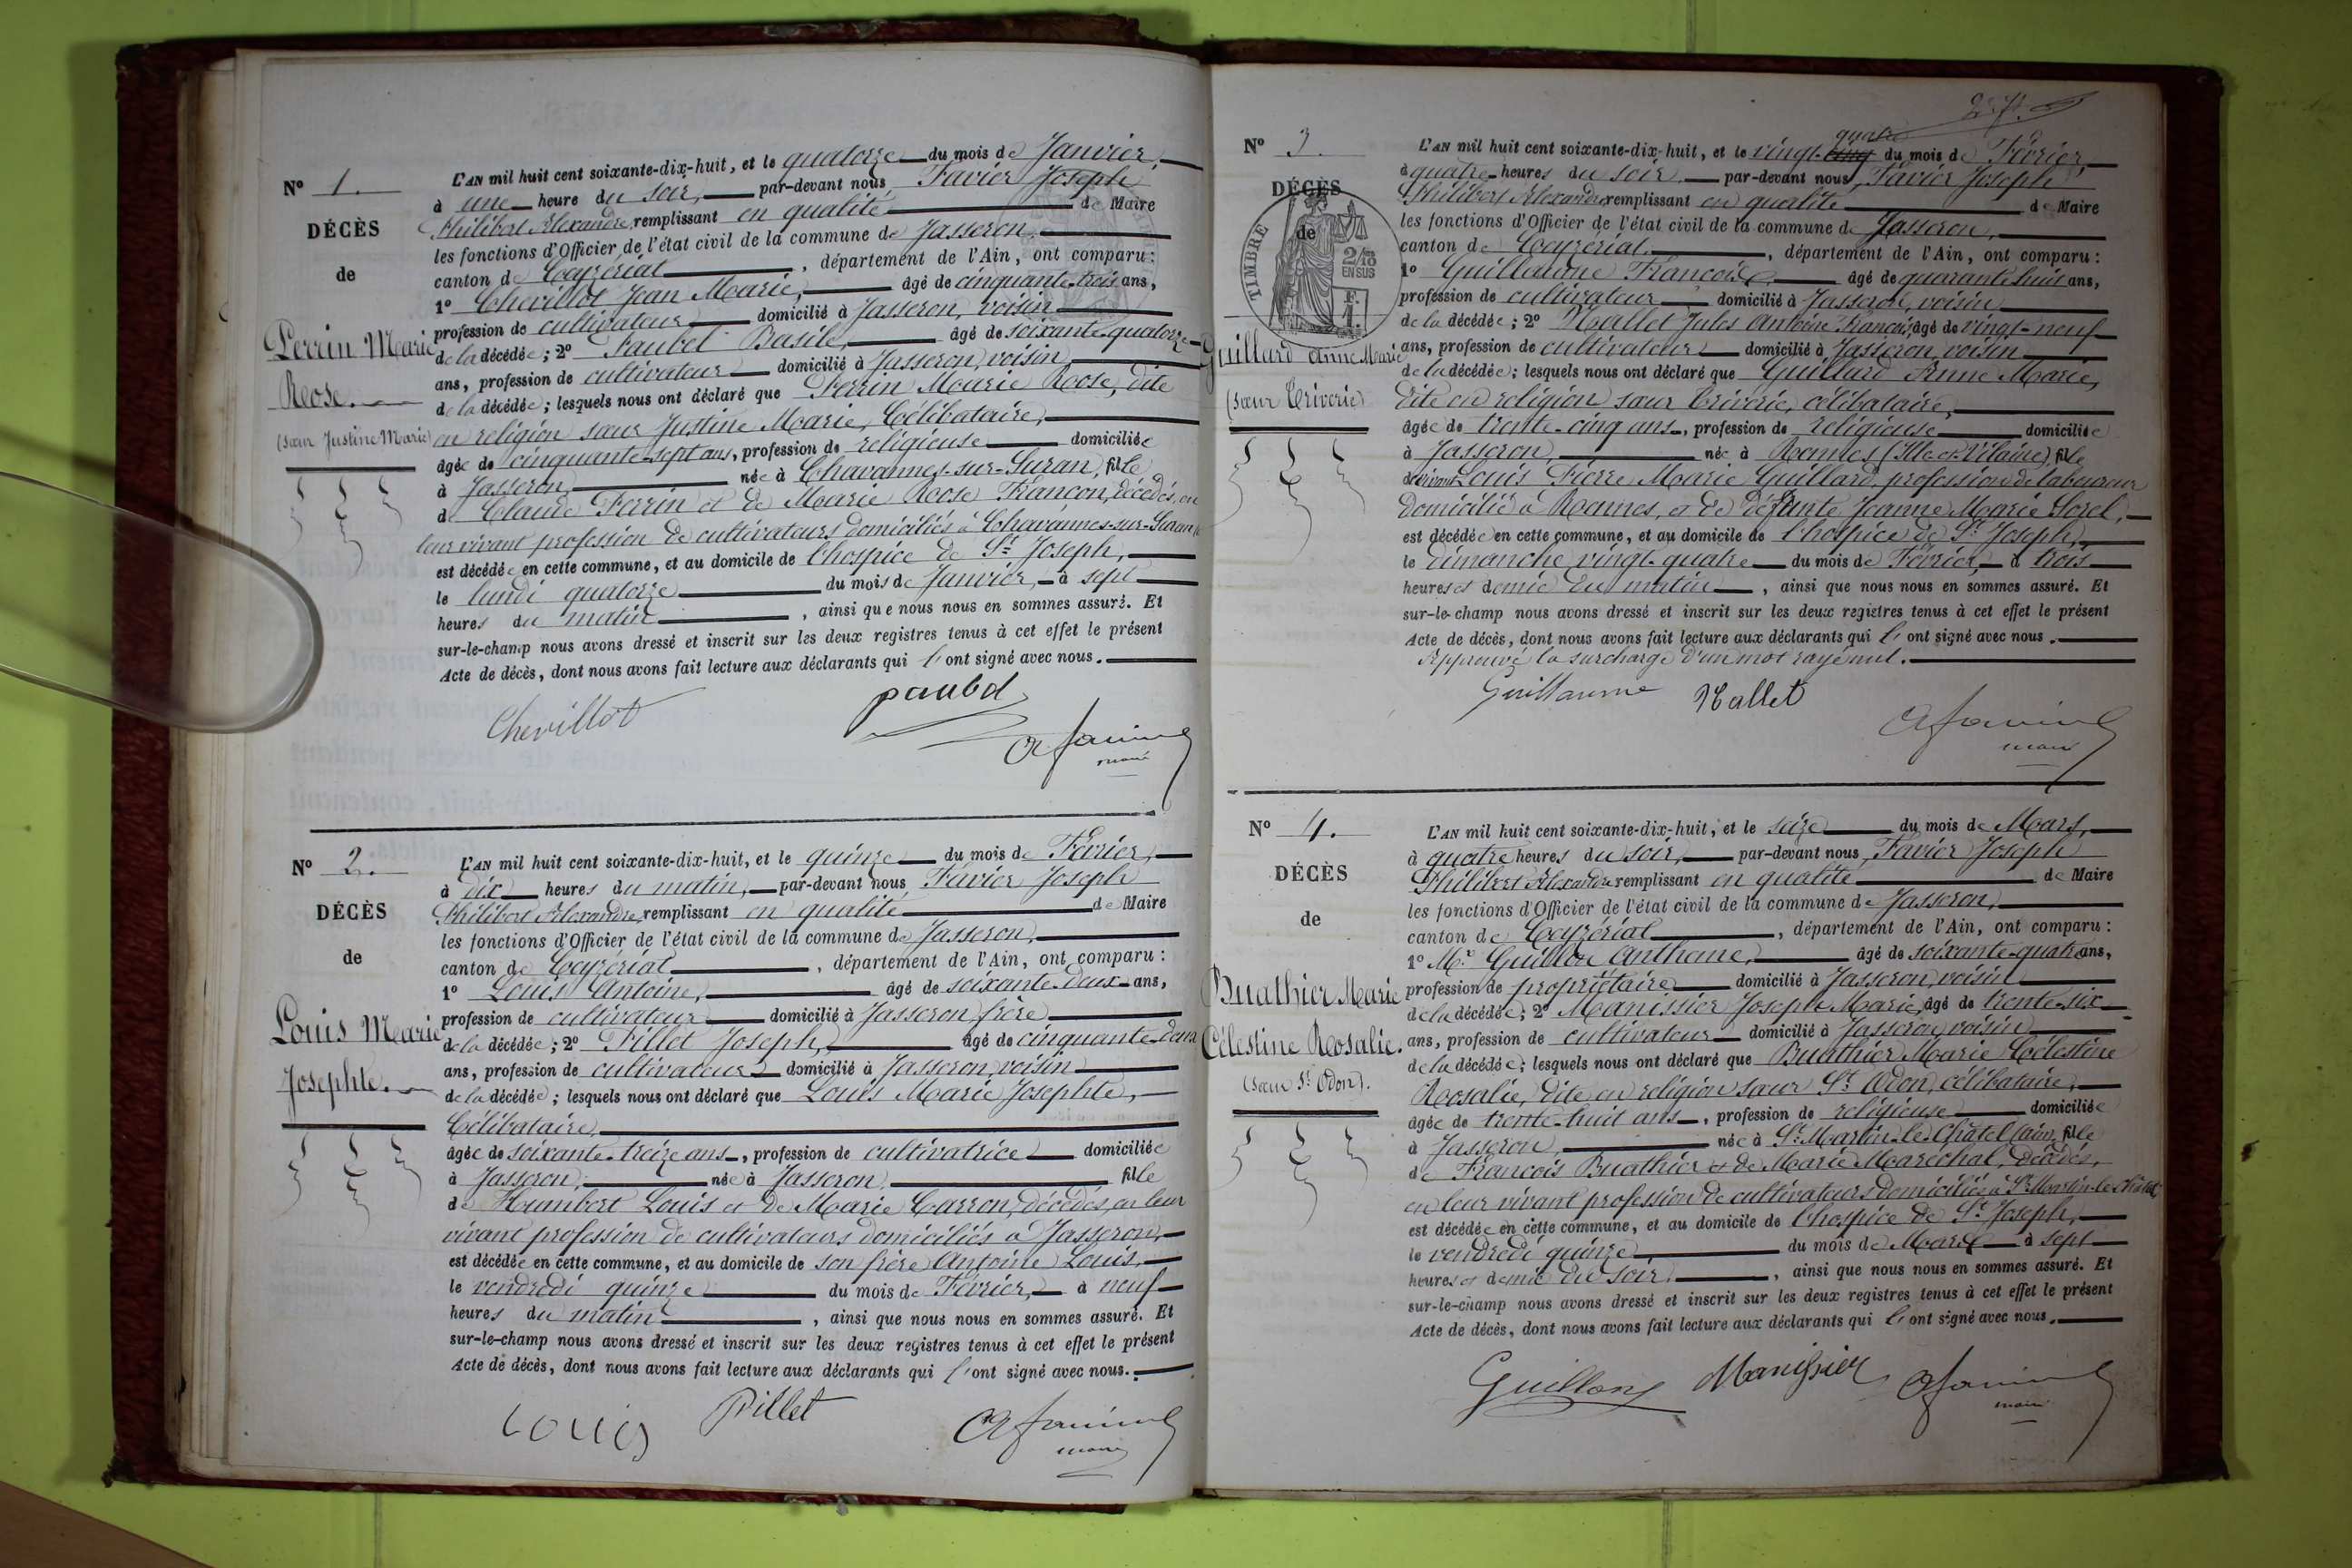 Nº 1.
DÉCÈS
de
Perrin Marie
Rose.
(sœur Justine Marie)
L'AN mil huit cent soixante-dix-huit, et le quatorze du mois de Janvier,
à une heure du soir, par-devant nous Favier Joseph
Philibert Alexandre, remplissant en qualité de Maire
les fonctions d'Officier de l'état civil de la commune de Jasseron,
canton de Ceyzériat, département de l'Ain, ont comparu :
1º Chevillot Jean Marie, âgé de cinquante-trois ans,
profession de cultivateur domicilié à Jasseron, voisin
de la décédée ; 2º Paubel Basile, âgé de soixante-quatorze
ans, profession de cultivateur domicilié à Jasseron, voisin
de la décédée ; lesquels nous ont déclaré que Perrin Marie Rose, dite
en religion sœur Justine Marie, Célibataire,
âgée de cinquante-sept ans, profession de religieuse domiciliée
à Jasseron, née à Chavannes-sur-Suran, fille
de Claude Perrin et de Marie Rose Françon, décédés, en
leur vivant profession de cultivateurs domiciliés à Chavannes-sur-Suran
est décédée en cette commune, et au domicile de l'hospice de St Joseph,
le lundi quatorze du mois de Janvier, à sept
heures du matin, ainsi que nous nous en sommes assuré. Et
sur-le-champ nous avons dressé et inscrit sur les deux registres tenus à cet effet le présent
Acte de décès, dont nous avons fait lecture aux déclarants qui l'ont signé avec nous.
Chevillot paubel
maire
Nº 2.
DÉCÈS
de
Louis Marie
Josephte.
L'AN mil huit cent soixante-dix-huit, et le quinze du mois de Février,
à dix heures du matin, par-devant nous Favier Joseph
Philibert Alexandre, remplissant en qualité de Maire
les fonctions d'Officier de l'état civil de la commune de Jasseron,
canton de Ceyzériat, département de l'Ain, ont comparu :
1º Louis Antoine, âgé de soixante-deux ans,
profession de cultivateur domicilié à Jasseron, frère
de la décédée ; 2º Pillet Joseph, âgé de cinquante-deux
ans, profession de cultivateur domicilié à Jasseron, voisin
de la décédée ; lesquels nous ont déclaré que Louis Marie Josephte,
Célibataire,
âgée de soixante-treize ans, profession de cultivatrice domiciliée
à Jasseron, née à Jasseron, fille
de Humbert Louis et de Marie Carron, décédés, en leur
vivant profession de cultivateurs domiciliés à Jasseron,
est décédée en cette commune, et au domicile de son frère Antoine Louis,
le vendredi quinze du mois de Février, à neuf
heures du matin, ainsi que nous nous en sommes assuré. Et
sur-le-champ nous avons dressé et inscrit sur les deux registres tenus à cet effet le présent
Acte de décès, dont nous avons fait lecture aux déclarants qui l'ont signé avec nous.
Louis Pillet
maire
Nº 3.
DÉCÈS
de
TIMBRE
2/10
EN SUS
F.
1.
Guillard Anne Marie
(sœur Triverie)
L'AN mil huit cent soixante-dix-huit, et le vingt-cinq quatre du mois de Février
à quatre heures du soir par-devant nous Favier Joseph
Philibert Alexandre remplissant en qualité de Maire
les fonctions d'Officier de l'état civil de la commune de Jasseron,
canton de Ceyzériat, département de l'Ain, ont comparu :
1º Guillaume François, âgé de quarante-huit ans,
profession de cultivateur domicilié à Jasseron, voisin
de la décédée ; 2º Mallet Jules Antoine François, âgé de vingt-neuf
ans, profession de cultivateur domicilié à Jasseron, voisin
de la décédée ; lesquels nous ont déclaré que Guillard Anne Marie,
dite en religion sœur Triverie, célibataire,
âgée de trente-cinq ans, profession de religieuse domiciliée
à Jasseron, née à Rennes (Ille et Vilaine), fille
de vivant Louis Pierre Marie Guillard, profession de laboureur
domicilié à Rennes, et de défunte Jeanne Marie Sorel,
est décédée en cette commune, et au domicile de l'hospice de St Joseph,
le dimanche vingt-quatre du mois de Février, à trois
heures et demie du matin, ainsi que nous nous en sommes assuré. Et
sur-le-champ nous avons dressé et inscrit sur les deux registres tenus à cet effet le présent
Acte de décès, dont nous avons fait lecture aux déclarants qui l'ont signé avec nous.
Approuvé la surcharge d'un mot rayé nul.
Guillaume Mallet
maire
Nº 4.
DÉCÈS
de
Buathier Marie
Célestine Rosalie.
(sœur St Odon).
L'AN mil huit cent soixante-dix-huit, et le seize du mois de Mars,
à quatre heures du soir, par-devant nous Favier Joseph
Philibert Alexandre remplissant en qualité de Maire
les fonctions d'Officier de l'état civil de la commune de Jasseron,
canton de Ceyzériat, département de l'Ain, ont comparu :
1º Mr Guillon Anthone, âgé de soixante-quatre ans,
profession de propriétaire domicilié à Jasseron, voisin
de la décédée ; 2º Manissier Joseph Marie, âgé de trente-six
ans, profession de cultivateur domicilié à Jasseron, voisin
de la décédée ; lesquels nous ont déclaré que Buathier Marie Célestine
Rosalie, dite en religion sœur St Odon, célibataire,
âgée de trente-huit ans, profession de religieuse domiciliée
à Jasseron, née à St Martin-le-Châtel (Ain), fille
de François Buathier et de Marie Maréchal, décédés,
en leur vivant profession de cultivateurs domiciliés à St Martin-le-Châtel
est décédée en cette commune, et au domicile de l'hospice de St Joseph,
le vendredi quinze du mois de Mars à sept
heures et demie du soir, ainsi que nous nous en sommes assuré. Et
sur-le-champ nous avons dressé et inscrit sur les deux registres tenus à cet effet le présent
Acte de décès, dont nous avons fait lecture aux déclarants qui l'ont signé avec nous.
Guillon Manissier
maire